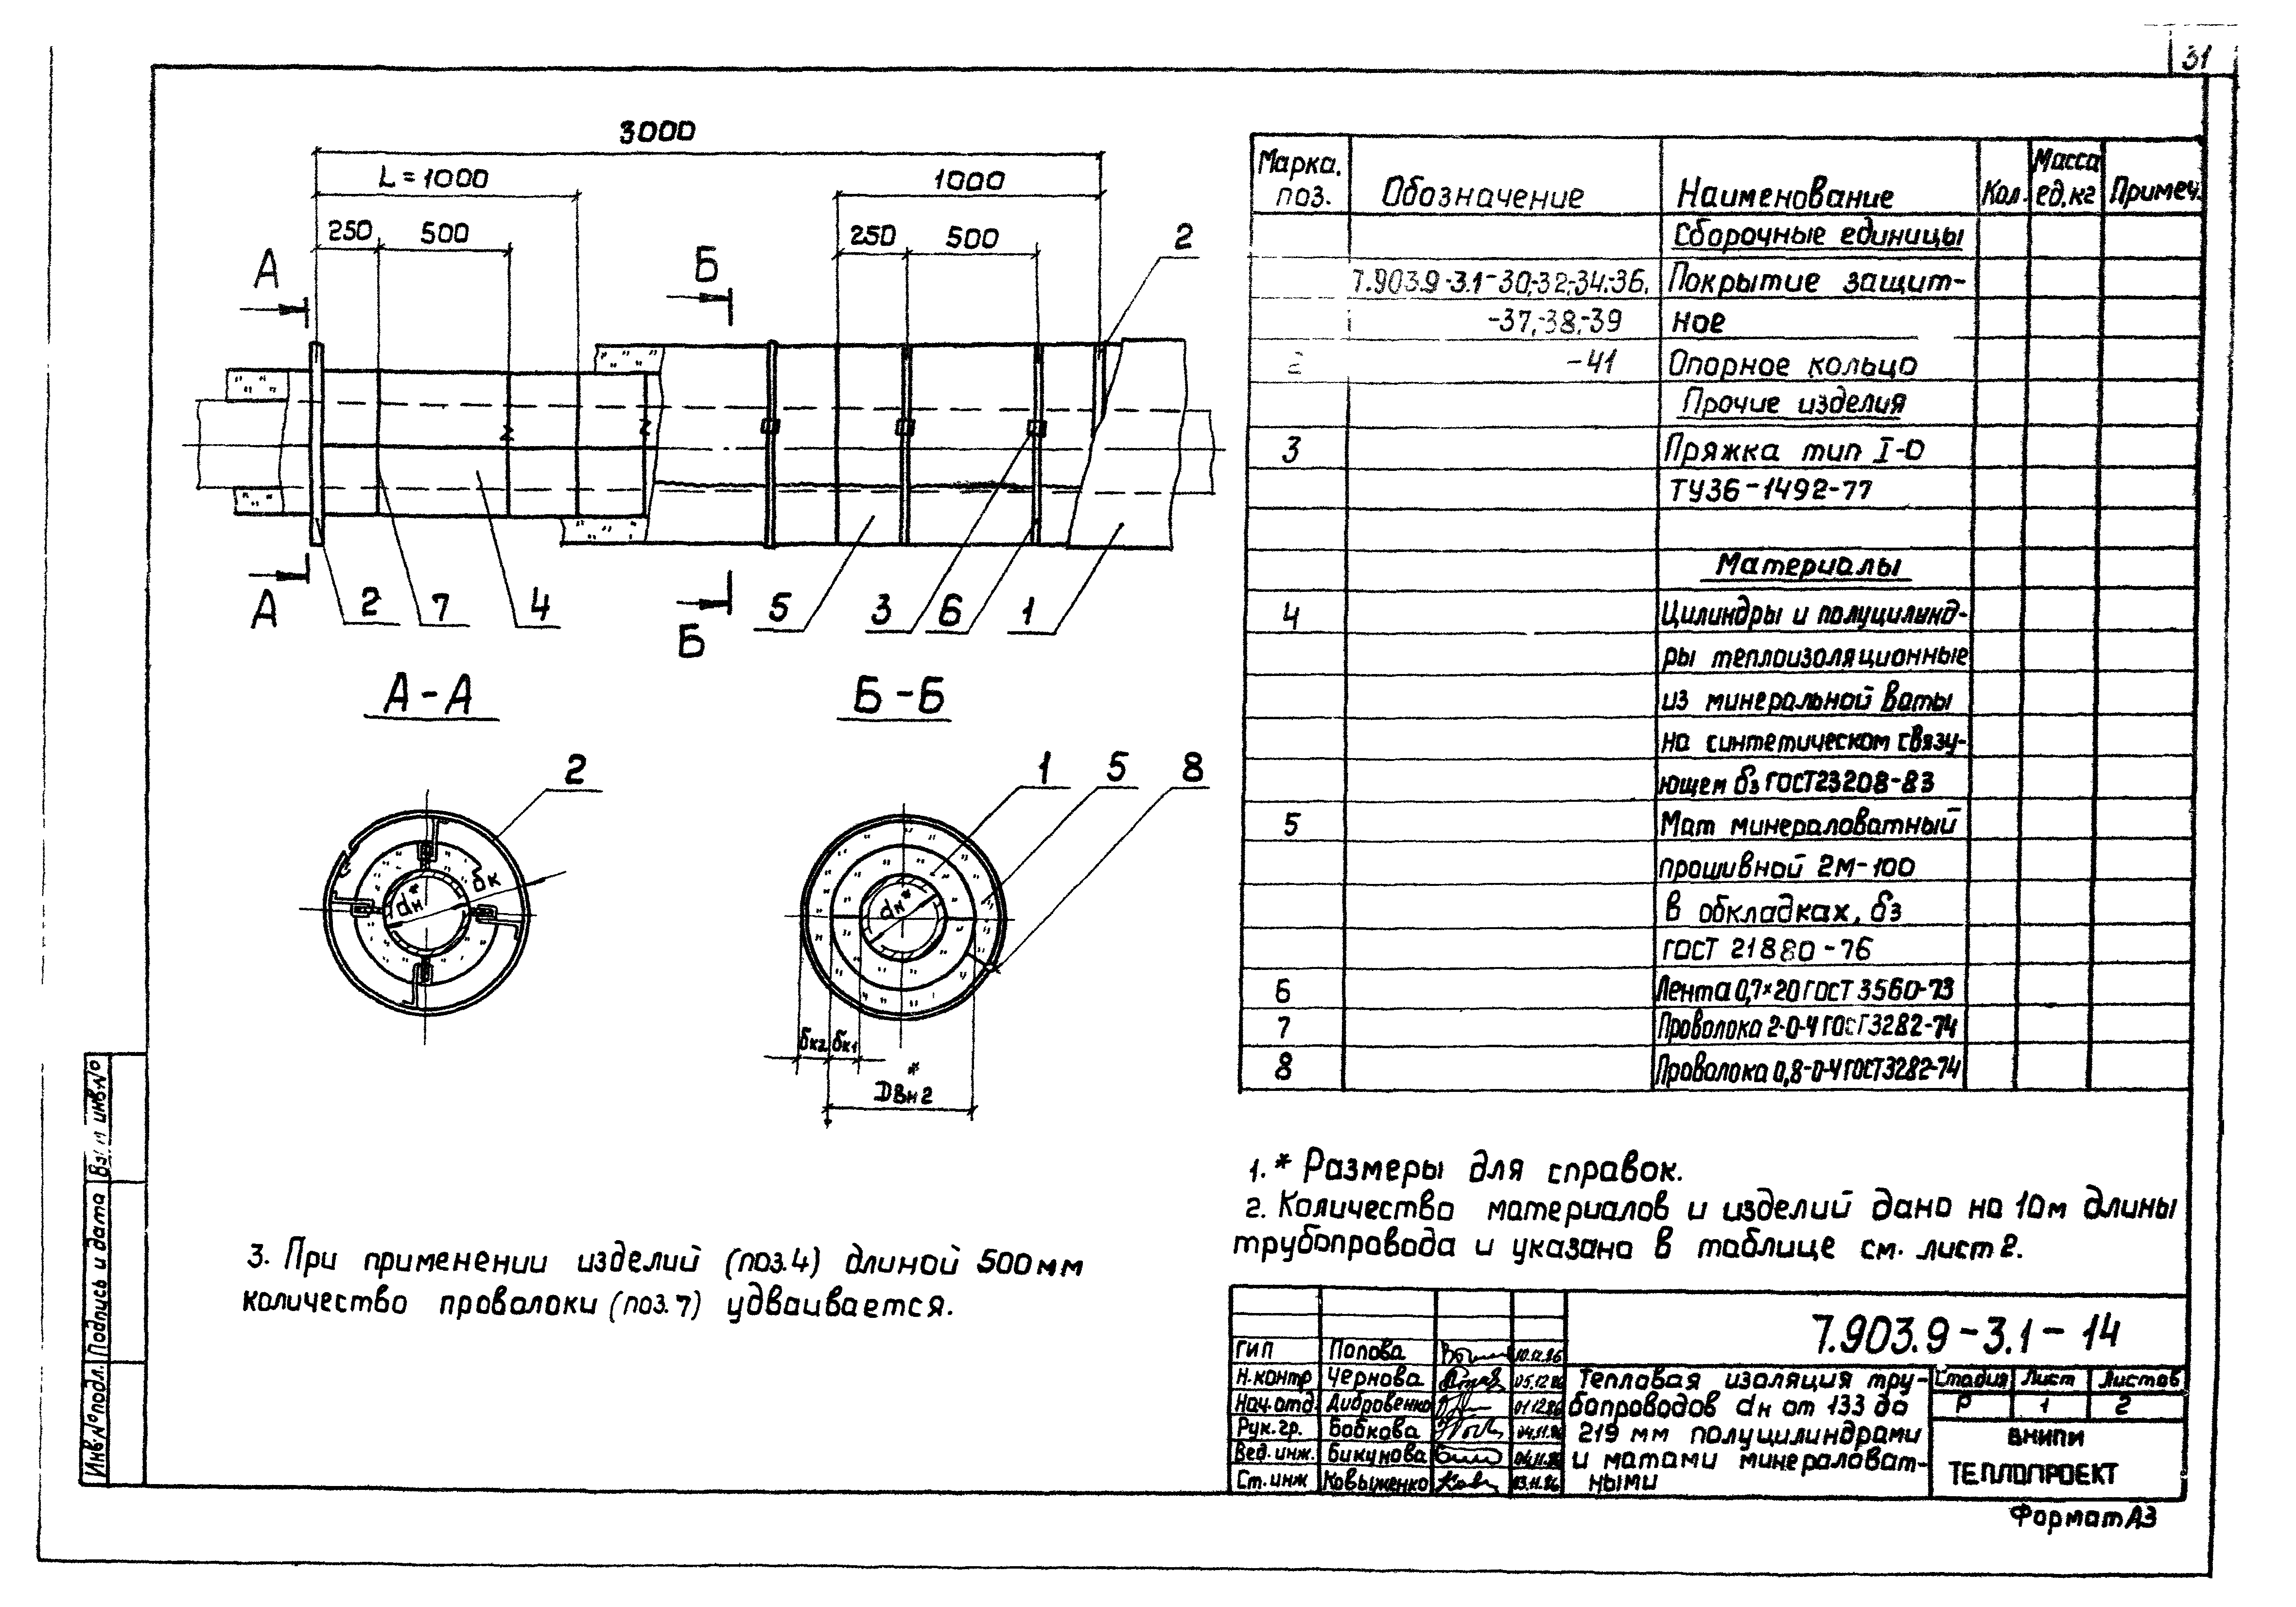 31
3000
L = 1000
1000
250
500
250
500
2
А
Б
А
2
7
4
Б
5
3
6
1
А - А
Б - Б
2
dн*
Dк
1
5
8
dн*
δк2
δк1
*
Dвн2
Марка, поз.
Обозначение
Наименование
Кол.
Масса ед,кг
Примеч.
Сборочные единицы
7.903.9-3.1-30;-32;-34;-36, Покрытие защит-
-37,-38,-39 ное
2 -41 Опорное кольцо
Прочие изделия
3 Пряжка тип I-О
ТУ36-1492-77
Материалы
4 Цилиндры и полуцилинд-
ры теплоизоляционные
из минеральной ваты
на синтетическом связу-
ющем бз ГОСТ23208-83
5 Мат минераловатный
прошивной 2М-100
в обкладках, бз
ГОСТ 21880-76
6 Лента 0,7×20 ГОСТ 3560-73
7 Проволока 2-О-Ч ГОСТ3282-74
8 Проволока 0,8-О-Ч ГОСТ3282-74
1.* Размеры для справок.
2. Количество материалов и изделий дано на 10м длины
трубопровода и указано в таблице см. лист 2.
3. При применении изделий (поз.4) длиной 500мм
количество проволоки (поз.7) удваивается.
Инв.№подл.
Подпись и дата
инв.№
7.903.9-3.1-14
ГИП Попова 10.12.86
Н.контр Чернова 05.12.86
Нач.отд. Дибровенко 01.12.86
Рук.гр. Бобкова 04.11.86
Вед.инж. Бикунова 04.11.86
Ст.инж Ковыженко 03.11.86
Тепловая изоляция тру-
бопроводов dн от 133 до
219 мм полуцилиндрами
и матами минераловат-
ными
Стадия Лист Листов
Р 1 2
ВНИПИ
ТЕПЛОПРОЕКТ
Формат А3